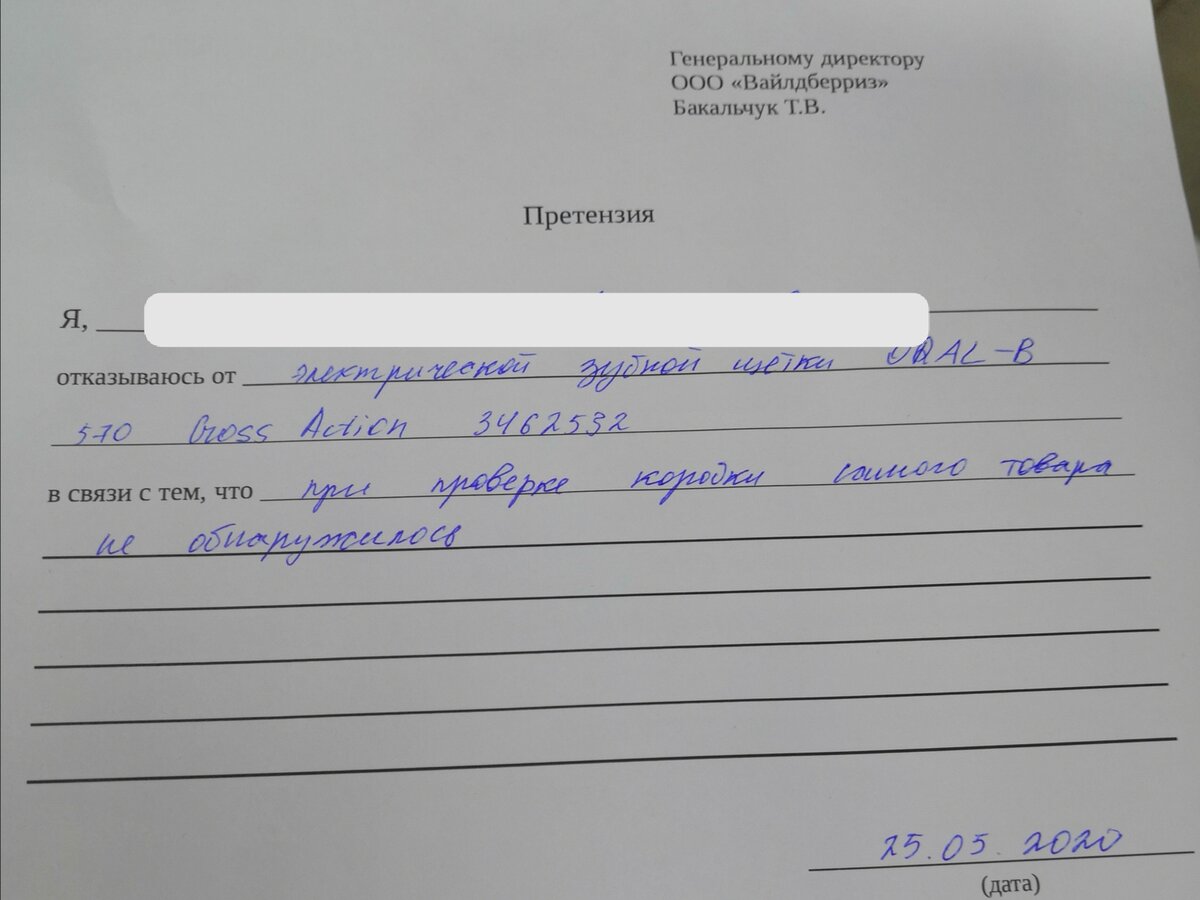 Генеральному директору
ООО «Вайлдберриз»
Бакальчук Т.В.
Претензия
Я,
отказываюсь от электрической зубной щетки ORAL-B
570 Cross Action 3462532
в связи с тем, что при проверке коробки самого товара
не обнаружилось
25.05.2020
(дата)